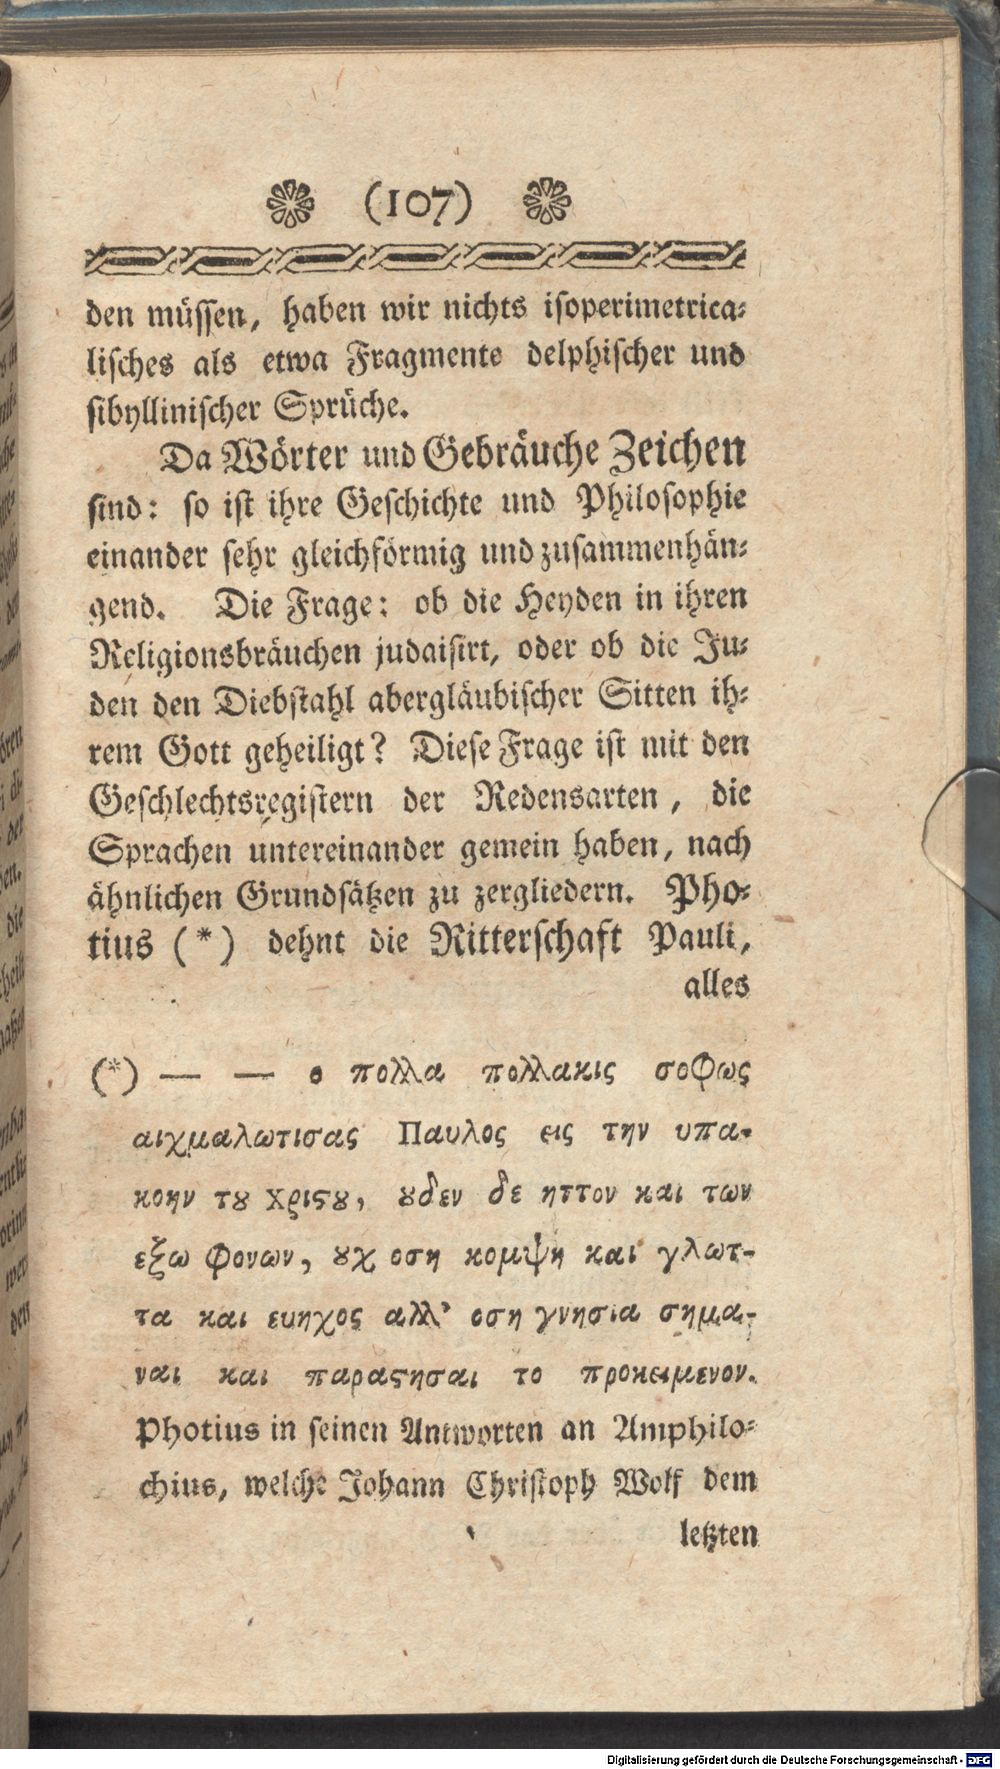 (107)
den müssen, haben wir nichts isoperimetrica-
lisches als etwa Fragmente delphischer und
sibyllinischer Sprüche.
Da Wörter und Gebräuche Zeichen
sind: so ist ihre Geschichte und Philosophie
einander sehr gleichförmig und zusammenhän-
gend. Die Frage: ob die Heyden in ihren
Religionsbräuchen judaisirt, oder ob die Ju-
den den Diebstahl abergläubischer Sitten ih-
rem Gott geheiligt? Diese Frage ist mit den
Geschlechtsregistern der Redensarten, die
Sprachen untereinander gemein haben, nach
ähnlichen Grundsätzen zu zergliedern. Pho-
tius (*) dehnt die Ritterschaft Pauli,
alles
(*) — — ο πολλα πολλακις σοφως
αιχμαλωτισας Παυλος εις την υπα-
κοην τȣ χριϛȣ, ȣδεν δε ηττον και των
εξω φονων, ȣχ οση κομψη και γλωτ-
τα και ευηχος αλλ' οση γνησια σημα-
ναι και παραϛησαι το προκειμενον.
Photius in seinen Antworten an Amphilo-
chius, welche Johann Christoph Wolf dem
letzten
Digitalisierung gefördert durch die Deutsche Forschungsgemeinschaft - DFG